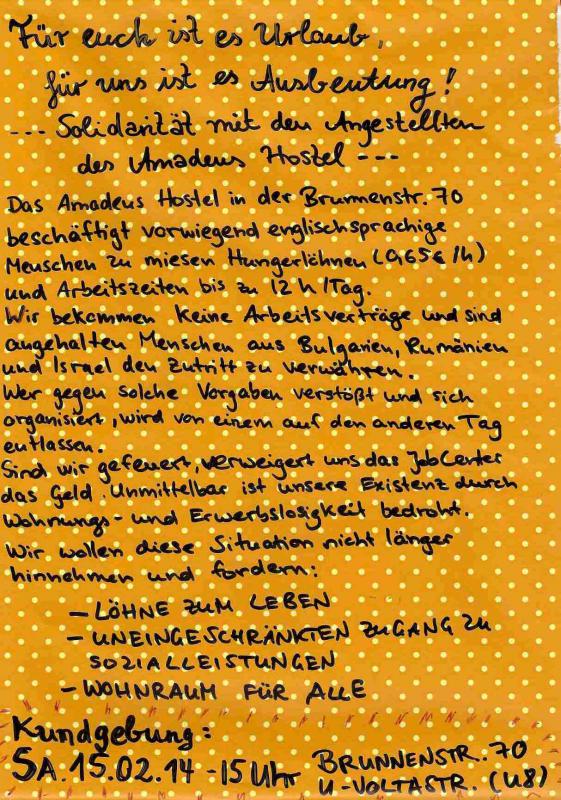 Für euch ist es Urlaub,
für uns ist es Ausbeutung!
--- Solidarität mit den Angestellten
des Amadeus Hostel ---
Das Amadeus Hostel in der Brunnenstr. 70
beschäftigt vorwiegend englischsprachige
Menschen zu miesen Hungerlöhnen (0,65€/h)
und Arbeitszeiten bis zu 12 h/Tag.
Wir bekommen keine Arbeitsverträge und sind
angehalten Menschen aus Bulgarien, Rumänien
und Israel den Zutritt zu verwähren.
Wer gegen solche Vorgaben verstößt und sich
organisiert, wird von einem auf den anderen Tag
entlassen.
Sind wir gefeuert, verweigert uns das JobCenter
das Geld. Unmittelbar ist unsere Existenz durch
Wohnungs- und Erwerbslosigkeit bedroht.
Wir wollen diese Situation nicht länger
hinnehmen und fordern:
- LÖHNE ZUM LEBEN
- UNEINGESCHRÄNKTEN ZUGANG ZU
SOZIALLEISTUNGEN
- WOHNRAUM FÜR ALLE
Kundgebung:
SA. 15.02.14 - 15 Uhr
BRUNNENSTR. 70
U-VOLTASTR. (U8)